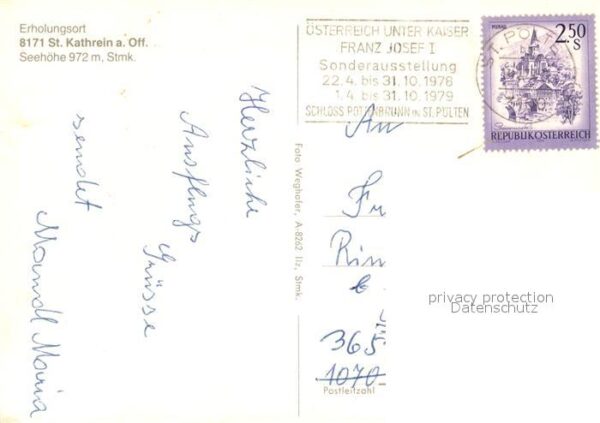 Erholungsort
8171 St. Kathrein a. Off.
Seehöhe 972 m, Stmk.
ÖSTERREICH UNTER KAISER
FRANZ JOSEF I
Sonderausstellung
22.4. bis 31.10.1978
1.4. bis 31.10.1979
SCHLOSS POTTENBRUNN IN ST. PÖLTEN
ST. PÖLT
MURAU
2.50
S
REPUBLIK ÖSTERREICH
Herzliche
Ausflugs
Grüsse
sendet
Mandl Maria
Foto Weghofer, A-8262 Ilz, Stmk.
An
Fr
Rin
365
1070
Postleitzahl
privacy protection
Datenschutz